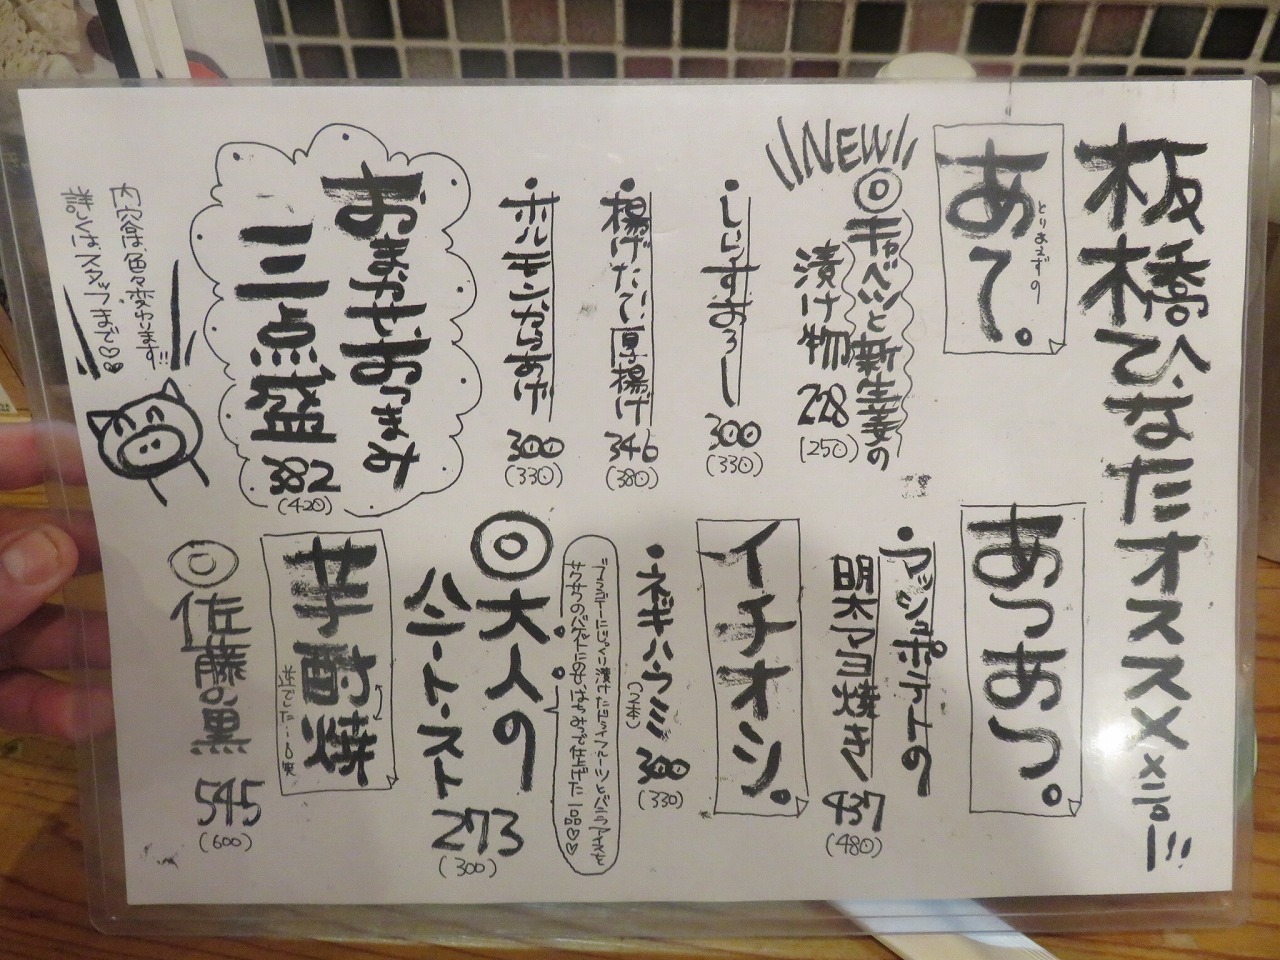 板橋ひなたオススメメニュー!!!
あて。
とりあえずの
NEW
◎キャベツと新生姜の
漬け物 228
(250)
・しらすおろし 300
(330)
・揚げたて厚揚げ 346
(380)
・ホルモンからあげ 300
(330)
おまかせおつまみ
三点盛 382
(420)
内容は色々変わります!!!
詳しくはスタッフまで♡
あつあつ。
・マッシュポテトの
明太マヨ焼き 437
(480)
イチオシ。
・ネギハラミ 300
(2本)
(330)
ブランデーにじっくり漬けたドライフルーツとバニラアイスを
サクサクのバゲットにのせはちみつで仕上げた一品♡♡
◎大人の
ハニートースト 273
(300)
芋酎焼
逆でした・・・
◎佐藤の黒 545
(600)